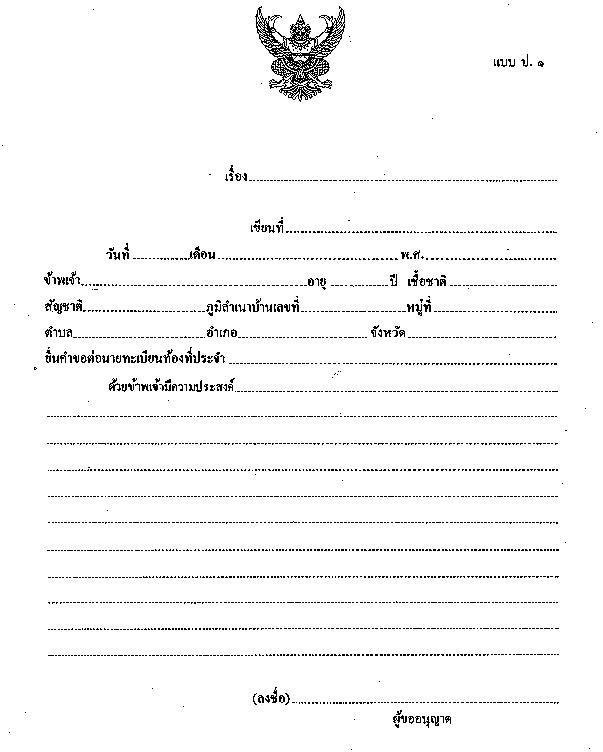 แบบ ป. ๑
เรื่อง
เขียนที่
วันที่ เดือน พ.ศ.
ข้าพเจ้า อายุ ปี เชื้อชาติ
สัญชาติ ภูมิลำเนาบ้านเลขที่ หมู่ที่
ตำบล อำเภอ จังหวัด
ยื่นคำขอต่อนายทะเบียนท้องที่ประจำ
ด้วยข้าพเจ้ามีความประสงค์
(ลงชื่อ)
ผู้ขออนุญาต